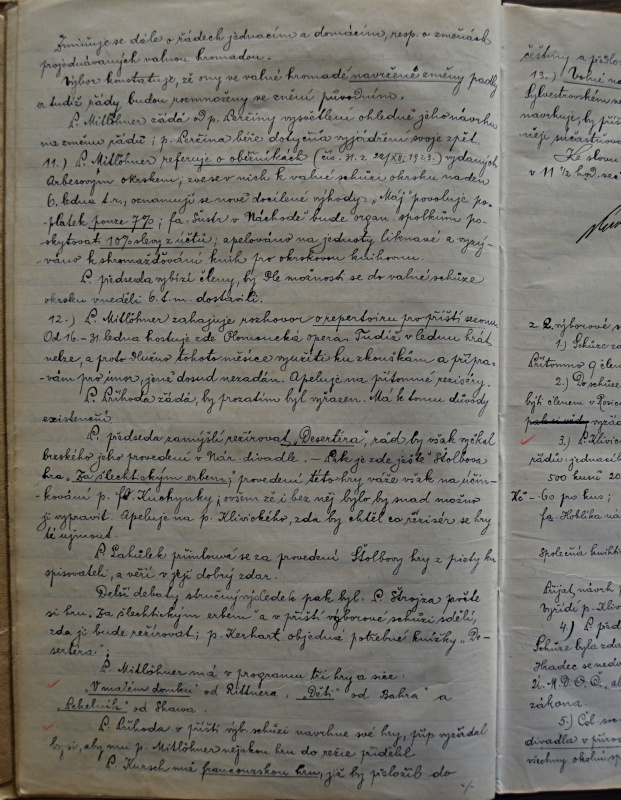 Zmiňuje se dále o řádech jednacím a domácím, resp. o změnách
projednávaných valnou hromadou.
Výbor konstatuje, že ony ve valné hromadě navržené změny padly
a tudíž řády budou rozmnoženy ve znění původním.
P. Mitlöhner žádá od p. Peřiny vysvětlení ohledně jeho návrhu
na změnu řádů; p. Peřina béře dotyčná vyjádření svoje zpět.
11.) P. Mitlöhner referuje o oběžníkách (čís. 31. z 22/XII. 1923.) vydaných
Arbesovým okrskem, zve se v nich k valné schůzi okrsku na den
6. ledna t.r., oznamují se nově docílené výhody: "Máj" povoluje po-
platek pouze 7%; fa. Šustr v Náchodě bude organ. spolkům po-
skytovat 10% slevy z účtů; apelováno na jednoty liknavé a vyzý-
váno k shromažďování knih pro okrskovou knihovnu.
P. předseda vybízí členy, by dle možnosti se do valné schůze
okrsku v neděli 6. t.m. dostavili.
12.) P. Mitlöhner zahajuje rozhovor o repertoiru pro příští sezonu
Od 16.-31. ledna hostuje zde Olomoucká opera. Tudíž v lednu hrát
nelze, a proto dlužno tohoto měsíce využíti ku zkouškám a přípra-
-vám pro únor, jenž dosud nezadán. Apeluje na přítomné režiséry.
P. Příhoda žádá, by prozatím byl vyřazen. Má k tomu důvody
existenční
P. předseda zamýšlí režírovat "Desertéra", rád by však vyčkal
brzského jeho provedení v Nár. divadle. – Pak je zde ještě Štolbova
hra "Za šlechtickým erbem"; provedení této hry váže však na účin-
kování p. Kuchynky; ovšem že i bez něj bylo by snad možno
ji vypravit. Apeluje na p. Klivického, zda by chtěl co režisér se hry
té ujmout.
P. přimlouvá se za provedení Štolbovy hry z piety ku
spisovateli, a věří v její dobrý zdar.
Delší debaty stručný výsledek pak byl: P. Štrojza pošte
si hru "Za šlechtickým erbem" a v příští výborové schůzi sdělí,
zda ji bude režírovat; p. Kerhart objedná potřebné knížky "De-
sertéra".
P. Mitlöhner má v programu tři hry a sice:
"V malém domku" od Rittnera, "Děti" od Bahra a
"Pekelník" od Shawa.
P. Příhoda v příští výb. schůzi navrhne své hry, půp vyžádal
by si, aby mu p. Mitlöhner nějakou hru do režie přidělil
P. Kursch má francouzskou hru, již by přeložil do
./.
češtiny a předlo
13.) Volné ná
Sylvestrovském ve
navrhuje, by příš
něji súčastňova
Ke slovu
v 11 1/2 hod. se
z 2. výborové s
1.) Schůze za
Přítomno 9 člen
2.) Do schůze
býti členem v Rosice
vyžá
3.) P. Klivic
řádů jednacích
500 kusů 20
Kč – 60 pro kus;
fa. Hoblíka ná
Společná knihti
Přijat návrh p
Vyřídí p. Kliv
4.) P. před
Schůze byla zda
Hradec se nedo
Ú. M. D. O. Č., al
zákona.
5.) Čsl. so
divadla v přírod
všechny okolní sp